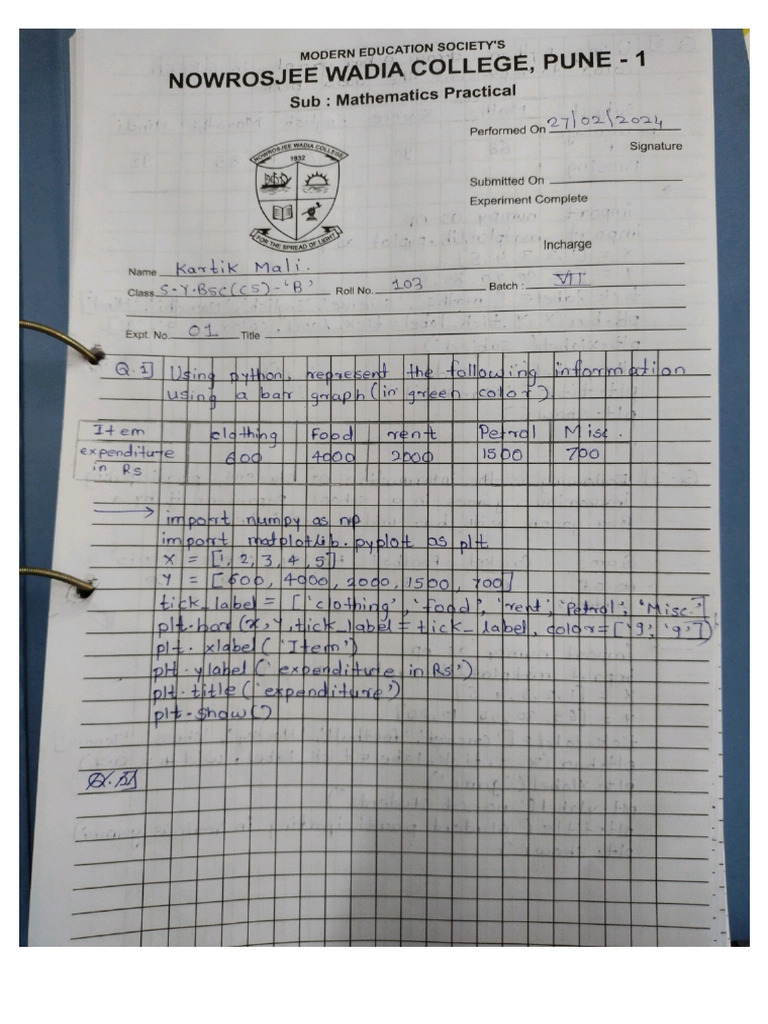 MODERN EDUCATION SOCIETY'S
NOWROSJEE WADIA COLLEGE, PUNE - 1
Sub : Mathematics Practical
Performed On 27/02/2024
Signature
Submitted On
Experiment Complete
Incharge
NOWROSJEE WADIA COLLEGE
1932
FOR THE SPREAD OF LIGHT
Name Kartik Mali.
Class S.Y.BSC(CS)-'B' Roll No. 103 Batch : VII
Expt. No. 01 Title
Q.1] Using python, represent the following information
using a bar graph (in green color)
Item clothing Food rent Petrol Misc.
expenditure 600 4000 2000 1500 700
in Rs
→ import numpy as np
import matplotlib.pyplot as plt
x = [1, 2, 3, 4, 5]
Y = [600, 4000, 2000, 1500, 700]
tick_label = ['clothing', 'food', 'rent', 'Petrol', 'Misc.']
plt.bar(x,Y,tick_label = tick_label, color=['g', 'g'])
plt.xlabel('Item')
plt.ylabel('expenditure in Rs')
plt.title('expenditure')
plt.show()